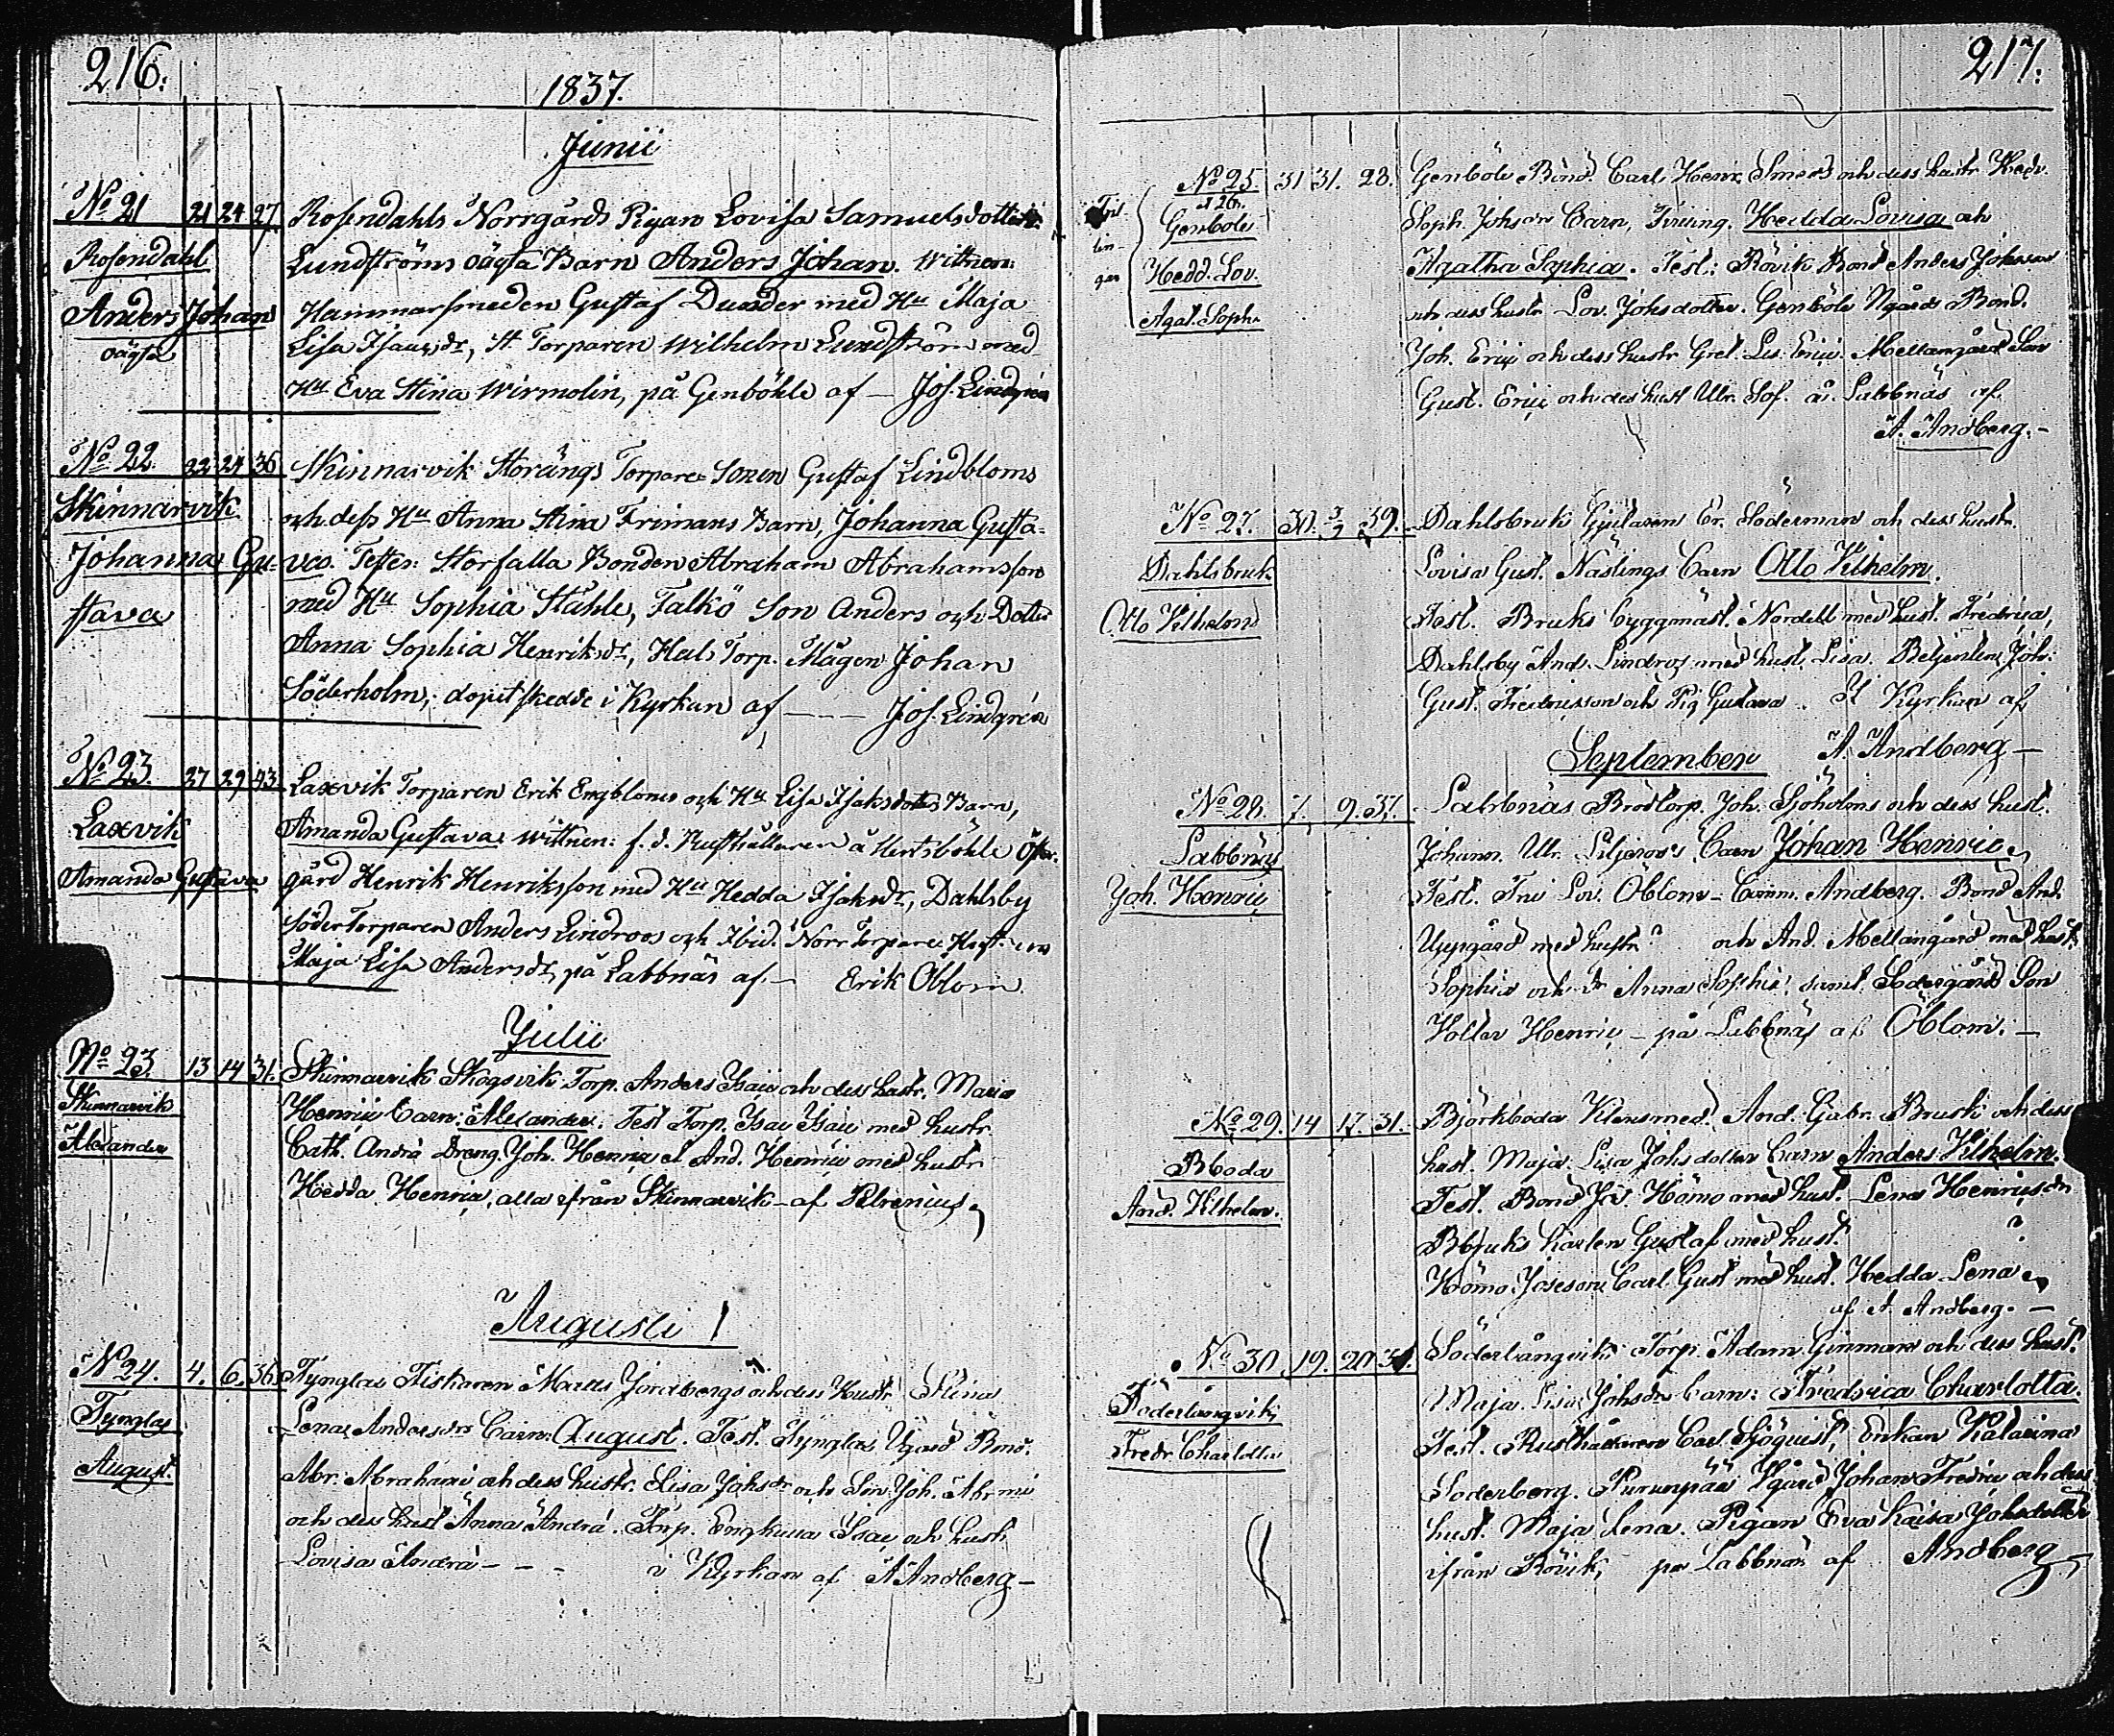 216.
1837.
Junii
No 21 21 24 27. Rosendahls Norrgårds Pigan Lovisa Samuelsdotter
Rosendahl Lundströms oägta Barn Anders Johan. Wittnen:
Anders Johan Hammarsmeden Gustaf Dunder med Hu Maja
oägta Lisa Isaacsdr, St Torparen Wilhelm Lundström med
Hu Eva Stina Wirmolin, på Genböhle af — Jos. Lindgrén
No 22 22 24 36 Skinnarvik Storängs Torpare Sonen Gustaf Lindbloms
Skinnarvik och dess Hu Anna Stina Frimans Barn, Johanna Gusta-
Johanna Gu- va. Testes: Storfalla Bonden Abraham Abrahamsson
stava med Hu Sophia Ståhle, Falkö Son Anders och Dotter
Anna Sophia Henriksdr, Torp. Mågen Johan
Söderholm; dopet skedde i Kyrkan af — — Jos. Lindgrén
No 23. 27 29 43 Laxvik Torparen Erik Engbloms och Hu Lisa Isaksdotters Barn,
Laxvik Amanda Gustava. Wittnen: f.d. Rusthållaren å Hertsböhle Öster-
Amanda Gustava gård Henrik Henriksson med Hu Hedda Isaksdr, Dahlsby
Söder Torparen Anders Lindroos och Ibid. Norr Torpare
Maja Lisa Andersdr, på Labbnäs af — Erik Oblom.
Julii
No 23 13 14 31. Skinnarvik Skogsvik Torp. Anders Isaci och dess hustr. Maria
Skinnarvik Henrici Barn: Alexander. Test Torp. Isac Isaci med hustr.
Alexander Cath. Andrä Dreng. Joh. Henrici et And. Henrici med hustr
Hedda Henrici, alla ifrån Skinnarvik — af Petrenius
Augusti
No 24. 4. 6. 36 Tynglax Fiskaren Matts Jordbergs och dess Hustr Stina
Tynglax Lena Andersdrs Barn: August. Test. Tynglax Ugård Bond.
August. Abr. Abrahami och dess hustr. Lisa Johsdr och Son Joh. Abrmi
och dess hust Anna Andrä. Torp. Isac och hustr
Lovisa Andrä — — — i Kyrkan af A Andberg —
217.
No 25 31 31. 28. Genböle Bond. Carl Henr. och dess hustr Hedv.
Tvil- & 26. Soph. Johsdrs Barn, Tvilling. Hedda Lovisa och
lin- Genböle Agatha Sophia. Test: Rövik Bond Anders Johnsson
gar Hedd. Lov. och dess hustr Lov. Johsdotter. Genböle Ngårds Bond.
Agat. Soph. Joh. Erici och dess hustr Gret. Lis. Erici. Mellangård Son
Gust. Erici och des hust Ulr. Sof. å Labbnäs af
A. Andberg. —
No 27. 30. 3/9 39. Dahlsbruk Gjutaren Er. Söderman och dess hustr.
Dahlsbruk Lovisa Gust. Näslings Barn Otto Vilhelm.
Otto Vilhelm Test. Bruks byggmäst. Nordell med hust. Fredrica,
Dahlsby And. Lindros med hust. Lisa. Betjenten Joh.
Gust. Fredricsson och Pig Gustava. I Kyrkan af
A. Andberg —
September
No 28. 7. 9. 37. Labbnäs Brodtorp. Joh. Sjöholms och dess hust.
Labbnäs Johann. Ulr. Barn Johan Henric
Joh. Henric Test. Fru Lov. Öblom — Comm. Andberg. Bond And.
Uppgård med hustr ? och And. Mellangård med hust
Sophia och Dr Anna Sophia, samt Södergårds Son
Henric — på Labbnäs af Öblom. —
No 29. 14 17. 31. Björkboda Klensmed. And. Gabr. Brusk och dess
Bboda hust. Maja Lisa Johsdotter Barn Anders Vilhelm.
And. Vilhelm. Test. Bond Hömo med hust. Lena Henricsdr
Bbruks karlen Gustaf med hust. ?
Hömo Carl Gust med hust. Hedda Lena
af A. Andberg. —
No 30 19. 20 31. Söderlångvik Torp. Adam Ginman och dess hust.
Söderlångvik Maja Lisa Johsdr barn: Fredrica Charlotta.
Fredr. Charlotta Test. Rusthållaren Carl Sjöquist, Enkan Katarina
Söderberg. Purunpää Johan Fredric och dess
hust. Maja Lena. Pigan Eva Kaisa Johsdotter
ifrån Rövik, på Labbnäs af Andberg —